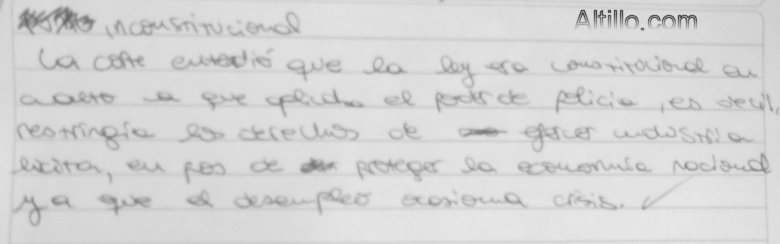 Altillo.com
inconstitucional
La corte entendió que la ley era constitucional en
cuanto a que aplicaba el poder de policia, es decir,
restringía los derechos de ejercer industria
lícita, en pos de proteger la economía nacional
ya que el desempleo ocasiona crisis.